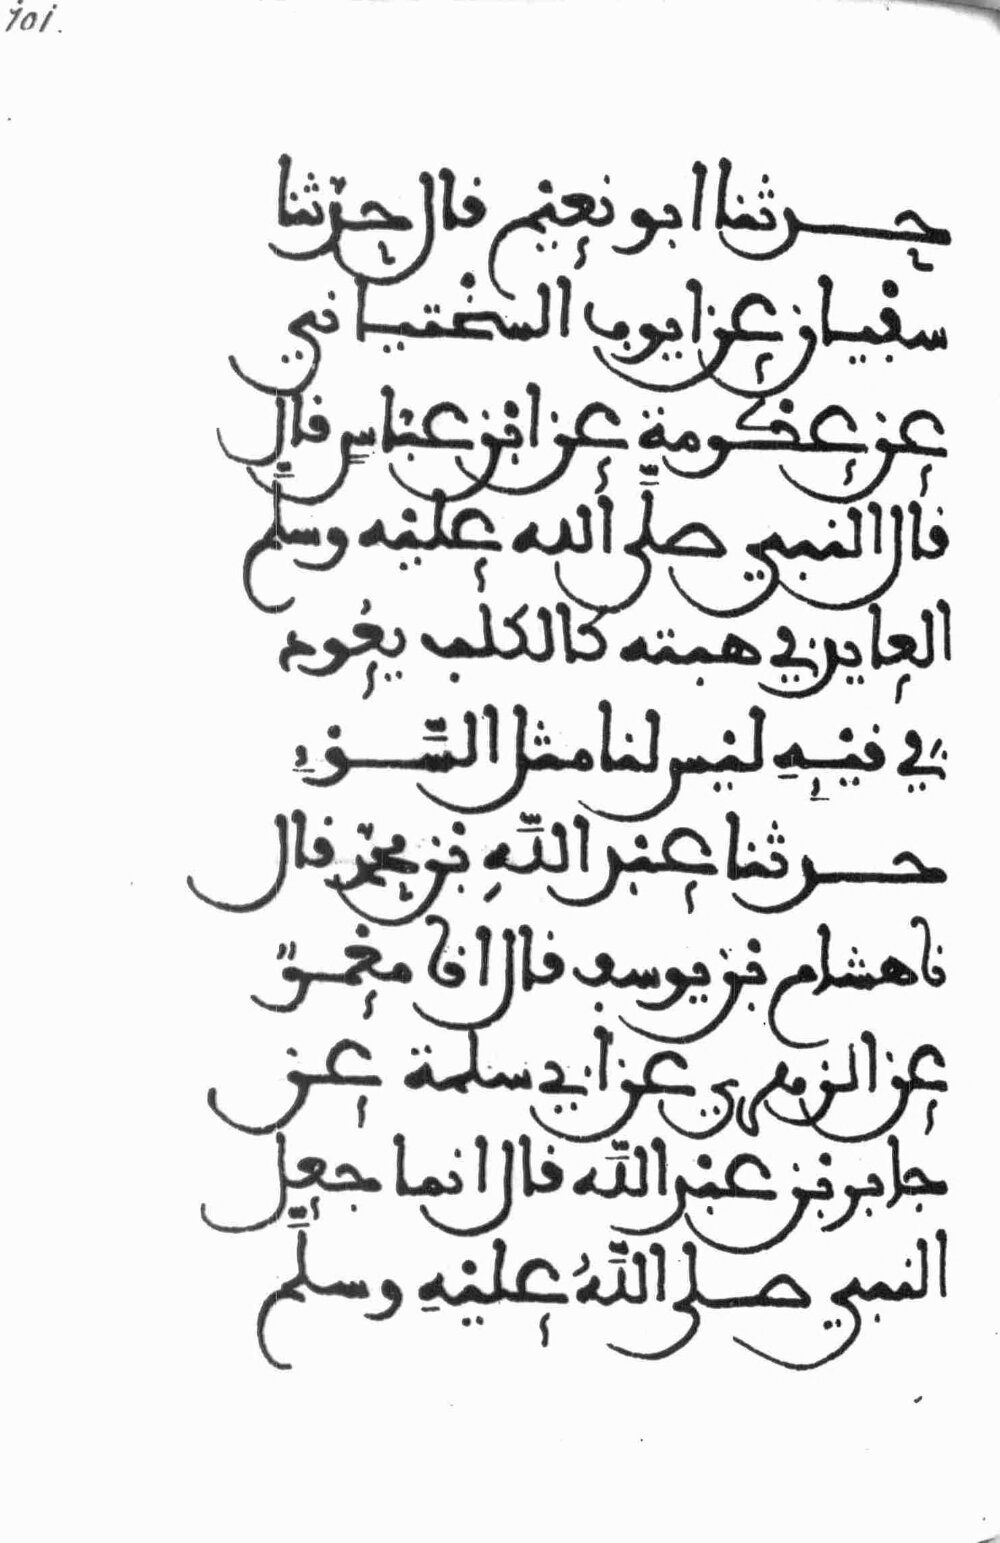 101.
حدثنا ابو نعيم قال حدثنا
سفيان عن ايوب السختياني
عن عكرمة عن ابن عباس قال
قال النبي صلى الله عليه وسلم
العايد في هبته كالكلب يعود
في قيئه ليس لنا مثل السوء
حدثنا عبد الله بن محمد قال
نا هشام بن يوسف قال انا معمر
عن الزهري عن ابي سلمة عن
جابر بن عبد الله قال انما جعل
النبي صلى الله عليه وسلم